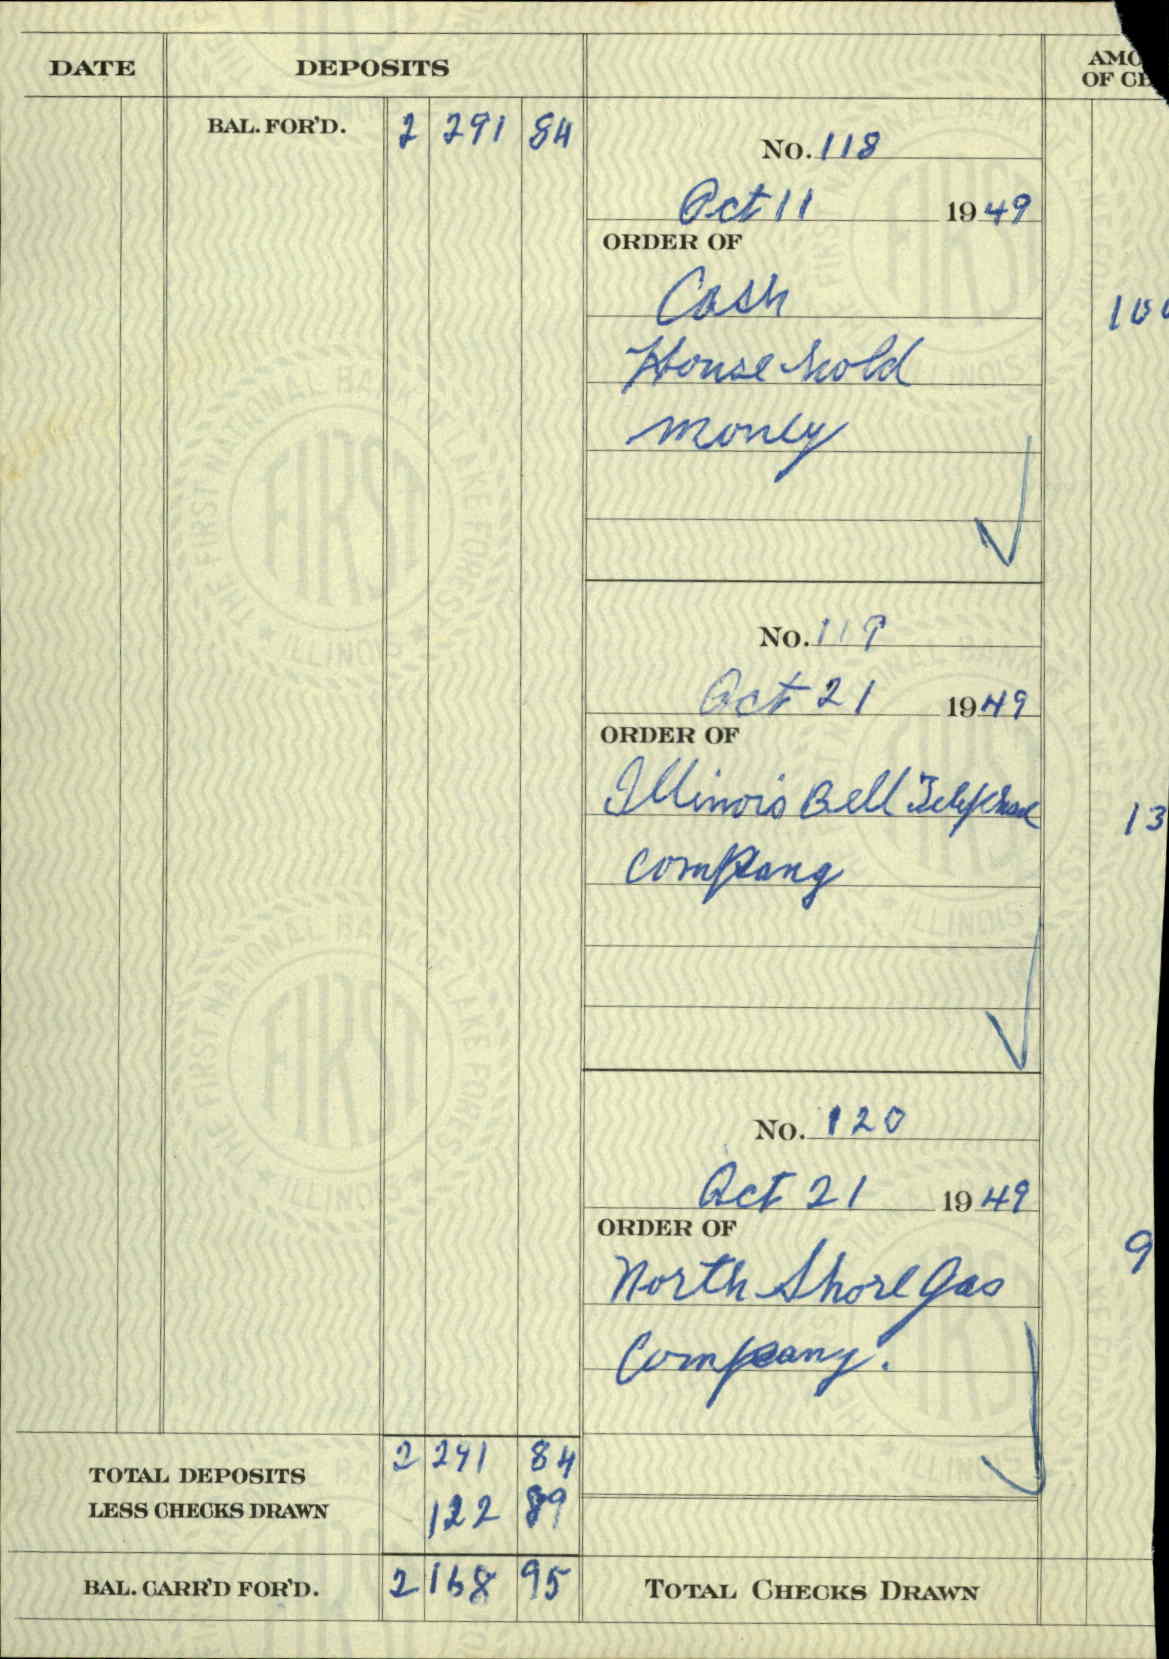 DATE DEPOSITS AMO
OF CH
BAL. FOR'D. 2 291 84
No. 118
Oct 11 1949
ORDER OF
Cash 100
Household
money
No. 119
Oct 21 1949
ORDER OF
Illinois Bell Telephone 13
Company
No. 120
Oct 21 1949
ORDER OF
North Shore Gas 9
Company.
TOTAL DEPOSITS 2 291 84
LESS CHECKS DRAWN 122 89
BAL. CARR'D FOR'D. 2 168 95 TOTAL CHECKS DRAWN
THE FIRST NATIONAL BANK OF LAKE FOREST
FIRST
ILLINOIS